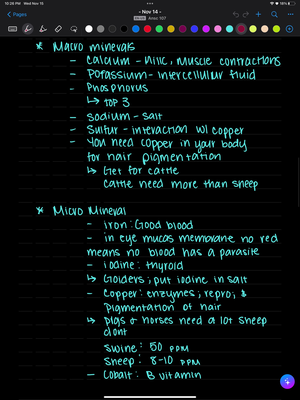 10:26 PM Wed Nov 15
16%
Pages
Nov 14
Ansc 107
* Macro minerals
- Calcium - Milk, muscle contractions
- Potassium - intercellular fluid
- Phosphorus
↳ TOP 3
- Sodium - salt
- Sulfur - interaction w/ copper
- You need copper in your body
for hair pigmentation
↳ Get for cattle
cattle need more than sheep
* Micro Mineral
- iron: Good blood
- in eye mucas membrane no red
means no blood has a parasite
- iodine: thyroid
↳ Goiders; put iodine in salt
- Copper: enzymes; repro; &
pigmentation of hair
↳ pigs & horses need a lot sheep
dont
Swine: 50 PPM
Sheep: 8-10 PPM
- Cobalt: B vitamin